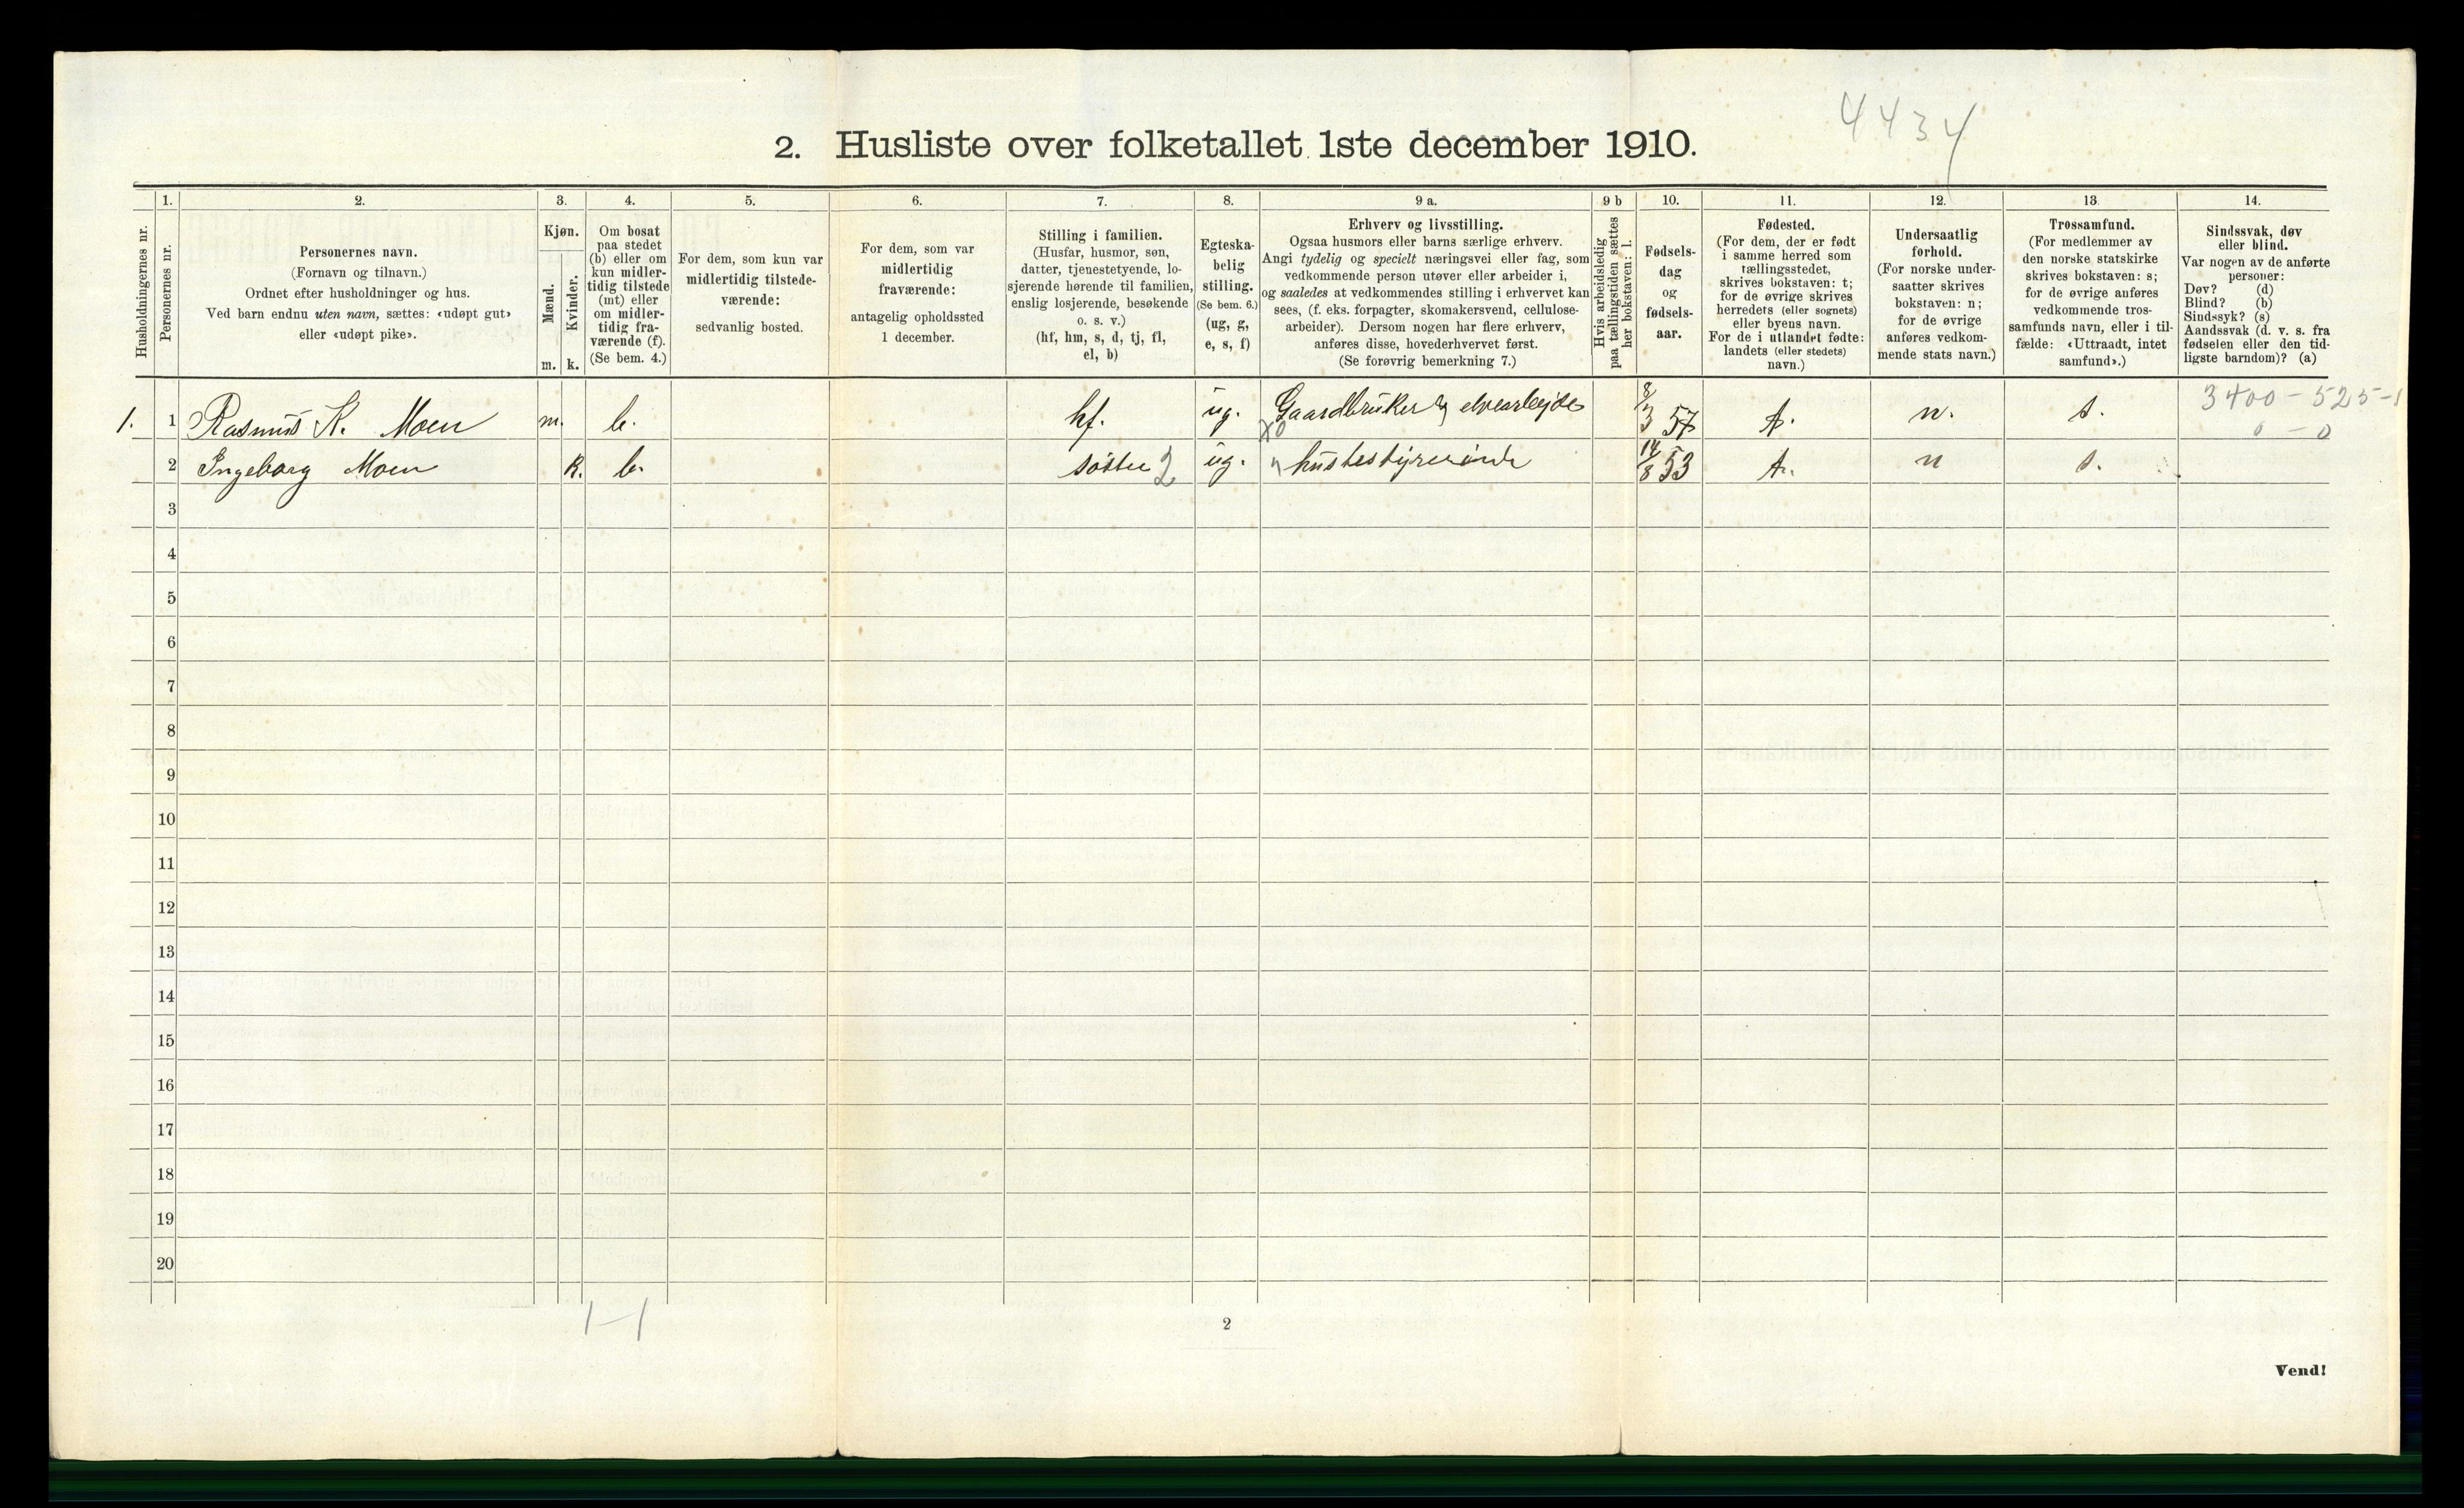 4434
2. Husliste over folketallet 1ste december 1910.
Husholdningernes nr.
1.
Personernes nr.
2.
Personernes navn.
(Fornavn og tilnavn.)
Ordnet efter husholdninger og hus.
Ved barn endnu uten navn, sættes: «udøpt gut»
eller «udøpt pike».
3.
Kjøn.
Mænd.
Kvinder.
m. k.
4.
Om bosat
paa stedet
(b) eller om
kun midler-
tidig tilstede
(mt) eller
om midler-
tidig fra-
værende (f).
(Se bem. 4.)
5.
For dem, som kun var
midlertidig tilstede-
værende:
sedvanlig bosted.
6.
For dem, som var
midlertidig
fraværende:
antagelig opholdssted
1 december.
7.
Stilling i familien.
(Husfar, husmor, søn,
datter, tjenestetyende, lo-
sjerende hørende til familien,
enslig losjerende, besøkende
o. s. v.)
(hf, hm, s, d, tj, fl,
el, b)
8.
Egteska-
belig
stilling.
(Se bem. 6.)
(ug, g,
e, s, f)
9 a.
Erhverv og livsstilling.
Ogsaa husmors eller barns særlige erhverv.
Angi tydelig og specielt næringsvei eller fag, som
vedkommende person utøver eller arbeider i,
og saaledes at vedkommendes stilling i erhvervet kan
sees, (f. eks. forpagter, skomakersvend, cellulose-
arbeider). Dersom nogen har flere erhverv,
anføres disse, hovederhvervet først.
(Se forøvrig bemerkning 7.)
9 b
Hvis arbeidsledig
paa tællingstiden sættes
her bokstaven: l.
10.
Fødsels-
dag
og
fødsels-
aar.
11.
Fødested.
(For dem, der er født
i samme herred som
tællingsstedet,
skrives bokstaven: t;
for de øvrige skrives
herredets (eller sognets)
eller byens navn.
For de i utlandet fødte:
landets (eller stedets)
navn.)
12.
Undersaatlig
forhold.
(For norske under-
saatter skrives
bokstaven: n;
for de øvrige
anføres vedkom-
mende stats navn.)
13.
Trossamfund.
(For medlemmer av
den norske statskirke
skrives bokstaven: s;
for de øvrige anføres
vedkommende tros-
samfunds navn, eller i til-
fælde: «Uttraadt, intet
samfund».)
14.
Sindssvak, døv
eller blind.
Var nogen av de anførte
personer:
Døv? (d)
Blind? (b)
Sindssyk? (s)
Aandssvak (d. v. s. fra
fødselen eller den tid-
ligste barndom)? (a)
1. 1 Rasmus K. Moen m. b. hf. ug. Gaardbruker og elvearbejde 8/3 57 t. n. s. 3400 - 525-1
X0 0 - 0
2 Ingeborg Moen k. b. søster 2 ug. husbestyrerinde 14/8 53 t. n s.
3
4
5
6
7
8
9
10
11
12
13
14
15
16
17
18
19
20
1-1
2
Vend!